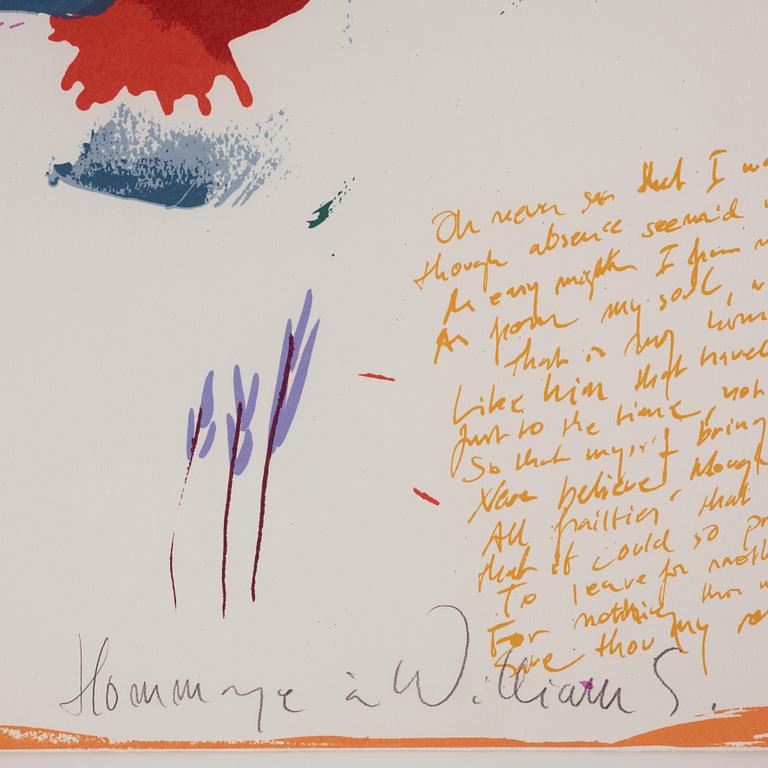 Oh never say that I wa
though absence seem'd
As easy might I from m
As from my soul, w
that is my home
Like him that travel
Just to the time, not
So that myself bring
Never believe though
All frailties, that
that it could so pr
To leave for nothi
For nothing this w
Save thou my ro
Hommage à William S.